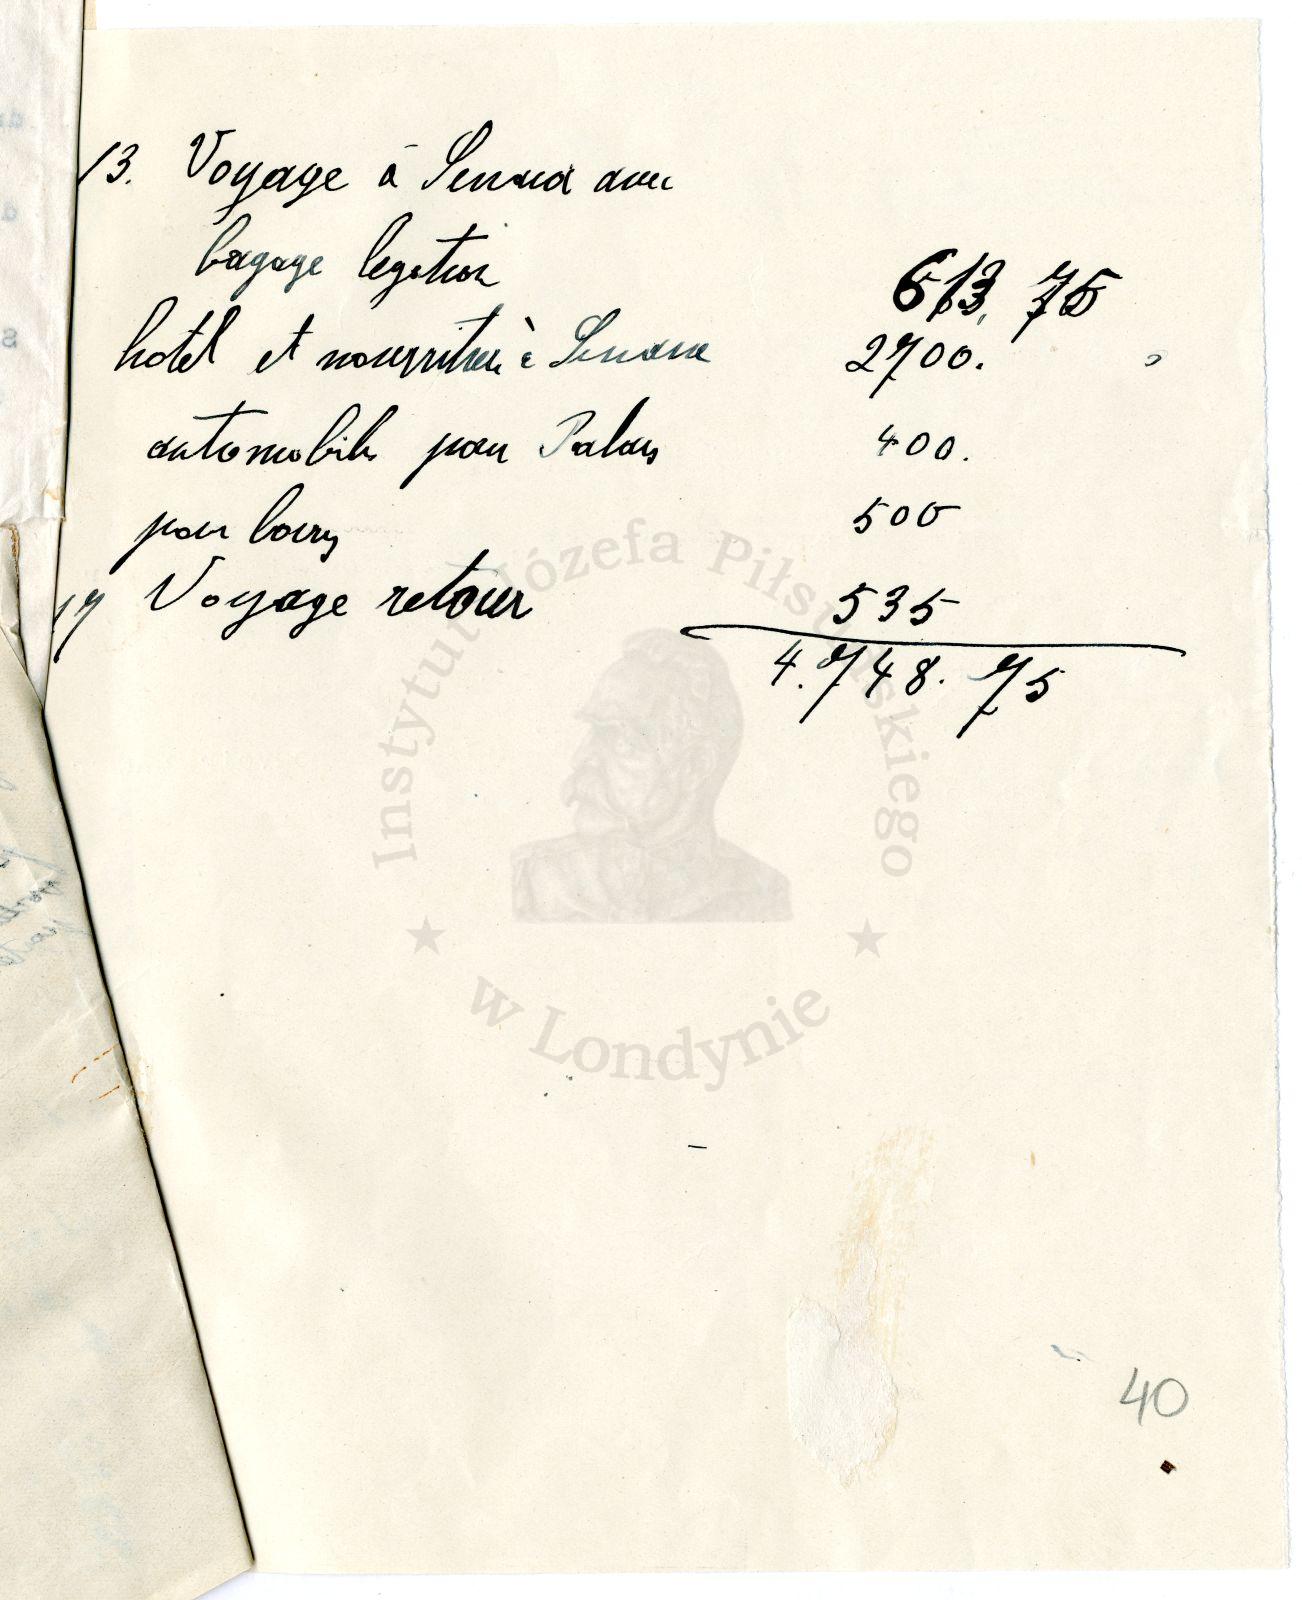 13. Voyage à Sinaia avec
bagage legation 613,75
hotel et nourriture à Sinaia 2700.
automobile pour Palais 400.
pour 500
17 Voyage retour 535
4.748.75
Instytut Józefa Piłsudskiego
w Londynie
40